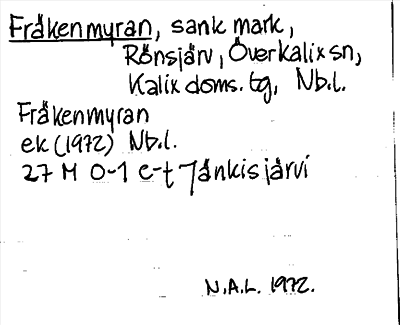 Fräkenmyran, sank mark,
Rönsjärv, Överkalix sn,
Kalix doms. tg, Nb.l.
Fräkenmyran
ek (1972) Nb.l.
27 M 0-1 c-t Jänkisjärvi
N.A.L. 1972.